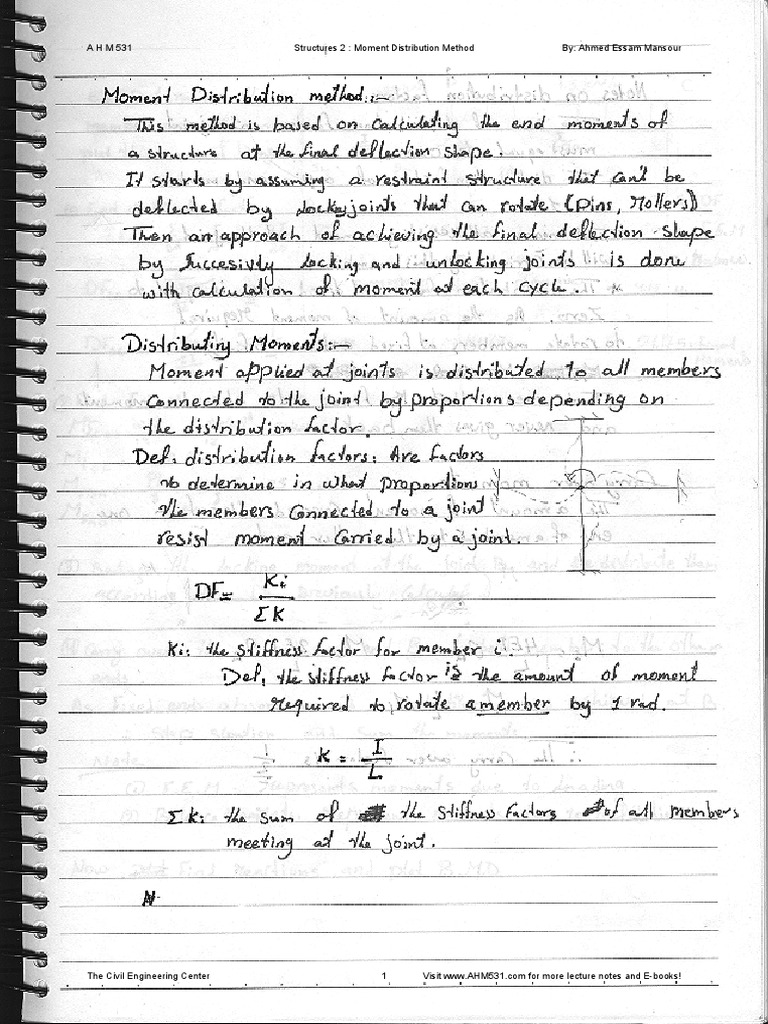 A H M 531 Structures 2 : Moment Distribution Method By: Ahmed Essam Mansour
Moment Distribution method:-
This method is based on calculating the end moments of
a structure at the final deflection shape.
It starts by assuming a restraint structure that can't be
deflected by locked joints that can rotate (Pins, Rollers)
Then an approach of achieving the final deflection shape
by succesivly locking and unlocking joints is done
with calculation of moment at each cycle.
Distributing Moments:-
Moment applied at joints is distributed to all members
connected to the joint by proportions depending on
the distribution factor.
Def: distribution factors: Are factors
to determine in what proportions
the members connected to a joint
resist moment carried by a joint.
DF = Ki
ΣK
Ki: the stiffness factor for member i.
Def, the stiffness factor is the amount of moment
required to rotate a member by 1 rad.
K = I
L
ΣK: the sum of the stiffness factors of all members
meeting at the joint.
N
The Civil Engineering Center 1 Visit www.AHM531.com for more lecture notes and E-books!